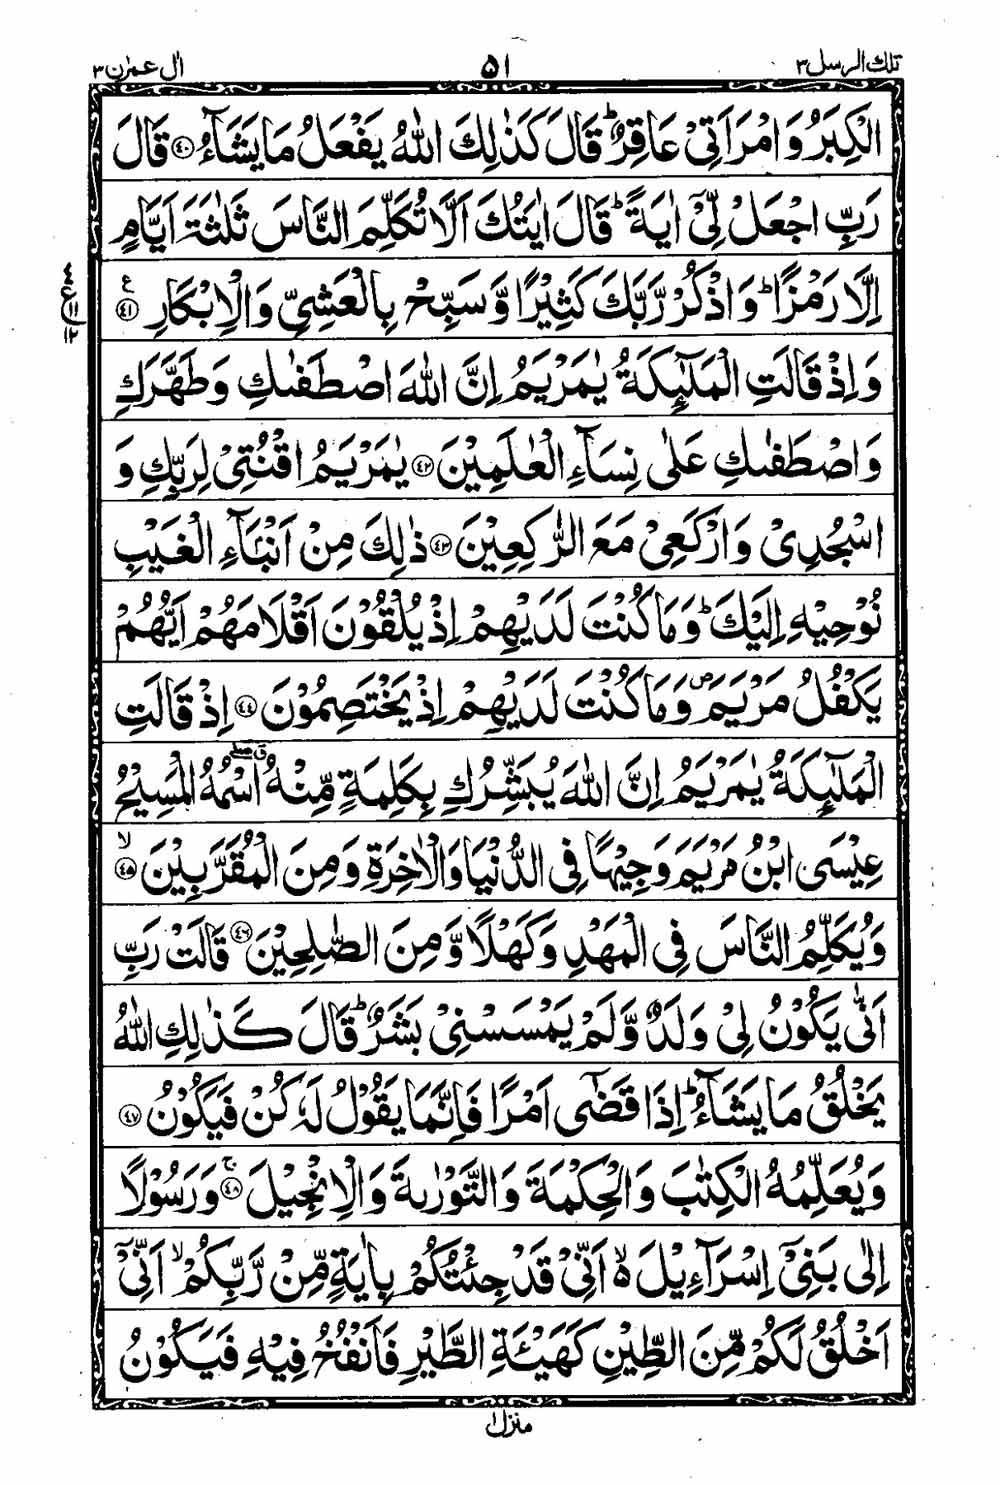 تلك الرسل ٣ ٥١ اٰل عمرٰن ٣
الْكِبَرُ وَامْرَاَتِيْ عَاقِرٌ ؕ قَالَ كَذٰلِكَ اللّٰهُ يَفْعَلُ مَا يَشَآءُ ﴿۴۰﴾ قَالَ
رَبِّ اجْعَلْ لِّيْۤ اٰيَةً ؕ قَالَ اٰيَتُكَ اَلَّا تُكَلِّمَ النَّاسَ ثَلٰثَةَ اَيَّامٍ
اِلَّا رَمْزًا ؕ وَاذْكُرْ رَّبَّكَ كَثِيْرًا وَّسَبِّحْ بِالْعَشِيِّ وَالْاِبْكَارِ ﴿۴۱﴾ ع
۴ ع ۱۱ ۱۲
وَاِذْ قَالَتِ الْمَلٰٓئِكَةُ يٰمَرْيَمُ اِنَّ اللّٰهَ اصْطَفٰىكِ وَطَهَّرَكِ
وَاصْطَفٰىكِ عَلٰى نِسَآءِ الْعٰلَمِيْنَ ﴿۴۲﴾ يٰمَرْيَمُ اقْنُتِيْ لِرَبِّكِ وَ
اسْجُدِيْ وَارْكَعِيْ مَعَ الرّٰكِعِيْنَ ﴿۴۳﴾ ذٰلِكَ مِنْ اَنْۢبَآءِ الْغَيْبِ
نُوْحِيْهِ اِلَيْكَ ؕ وَمَا كُنْتَ لَدَيْهِمْ اِذْ يُلْقُوْنَ اَقْلَامَهُمْ اَيُّهُمْ
يَكْفُلُ مَرْيَمَ ۪ وَمَا كُنْتَ لَدَيْهِمْ اِذْ يَخْتَصِمُوْنَ ﴿۴۴﴾ اِذْ قَالَتِ
الْمَلٰٓئِكَةُ يٰمَرْيَمُ اِنَّ اللّٰهَ يُبَشِّرُكِ بِكَلِمَةٍ مِّنْهُ ۖۗ اسْمُهُ الْمَسِيْحُ
عِيْسَى ابْنُ مَرْيَمَ وَجِيْهًا فِي الدُّنْيَا وَالْاٰخِرَةِ وَمِنَ الْمُقَرَّبِيْنَ ﴿۴۵﴾ ۙ
وَيُكَلِّمُ النَّاسَ فِي الْمَهْدِ وَكَهْلًا وَّمِنَ الصّٰلِحِيْنَ ﴿۴۶﴾ قَالَتْ رَبِّ
اَنّٰى يَكُوْنُ لِيْ وَلَدٌ وَّلَمْ يَمْسَسْنِيْ بَشَرٌ ؕ قَالَ كَذٰلِكِ اللّٰهُ
يَخْلُقُ مَا يَشَآءُ ؕ اِذَا قَضٰۤى اَمْرًا فَاِنَّمَا يَقُوْلُ لَهٗ كُنْ فَيَكُوْنُ ﴿۴۷﴾
وَيُعَلِّمُهُ الْكِتٰبَ وَالْحِكْمَةَ وَالتَّوْرٰىةَ وَالْاِنْجِيْلَ ﴿۴۸﴾ ۚ وَرَسُوْلًا
اِلٰى بَنِيْۤ اِسْرَآءِيْلَ ۙ۬ اَنِّيْ قَدْ جِئْتُكُمْ بِاٰيَةٍ مِّنْ رَّبِّكُمْ ۙ اَنِّيْۤ
اَخْلُقُ لَكُمْ مِّنَ الطِّيْنِ كَهَيْئَةِ الطَّيْرِ فَاَنْفُخُ فِيْهِ فَيَكُوْنُ
منزل ۱